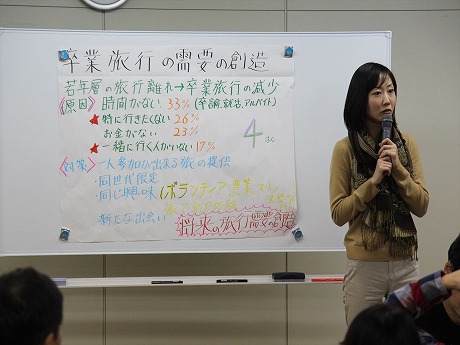 卒業旅行の需要の創造
若年層の旅行離れ→卒業旅行の減少
《原因》時間がない 33% (卒論、就活、アルバイト)
★特に行きたくない 26%
お金がない 23%
★一緒に行く人がいない 17%
4
《対策》一人参加が出来る旅の提供
・同世代限定
・同じ興味 (ボランティア 農業
新たな出会い
将来の旅行需要の創造